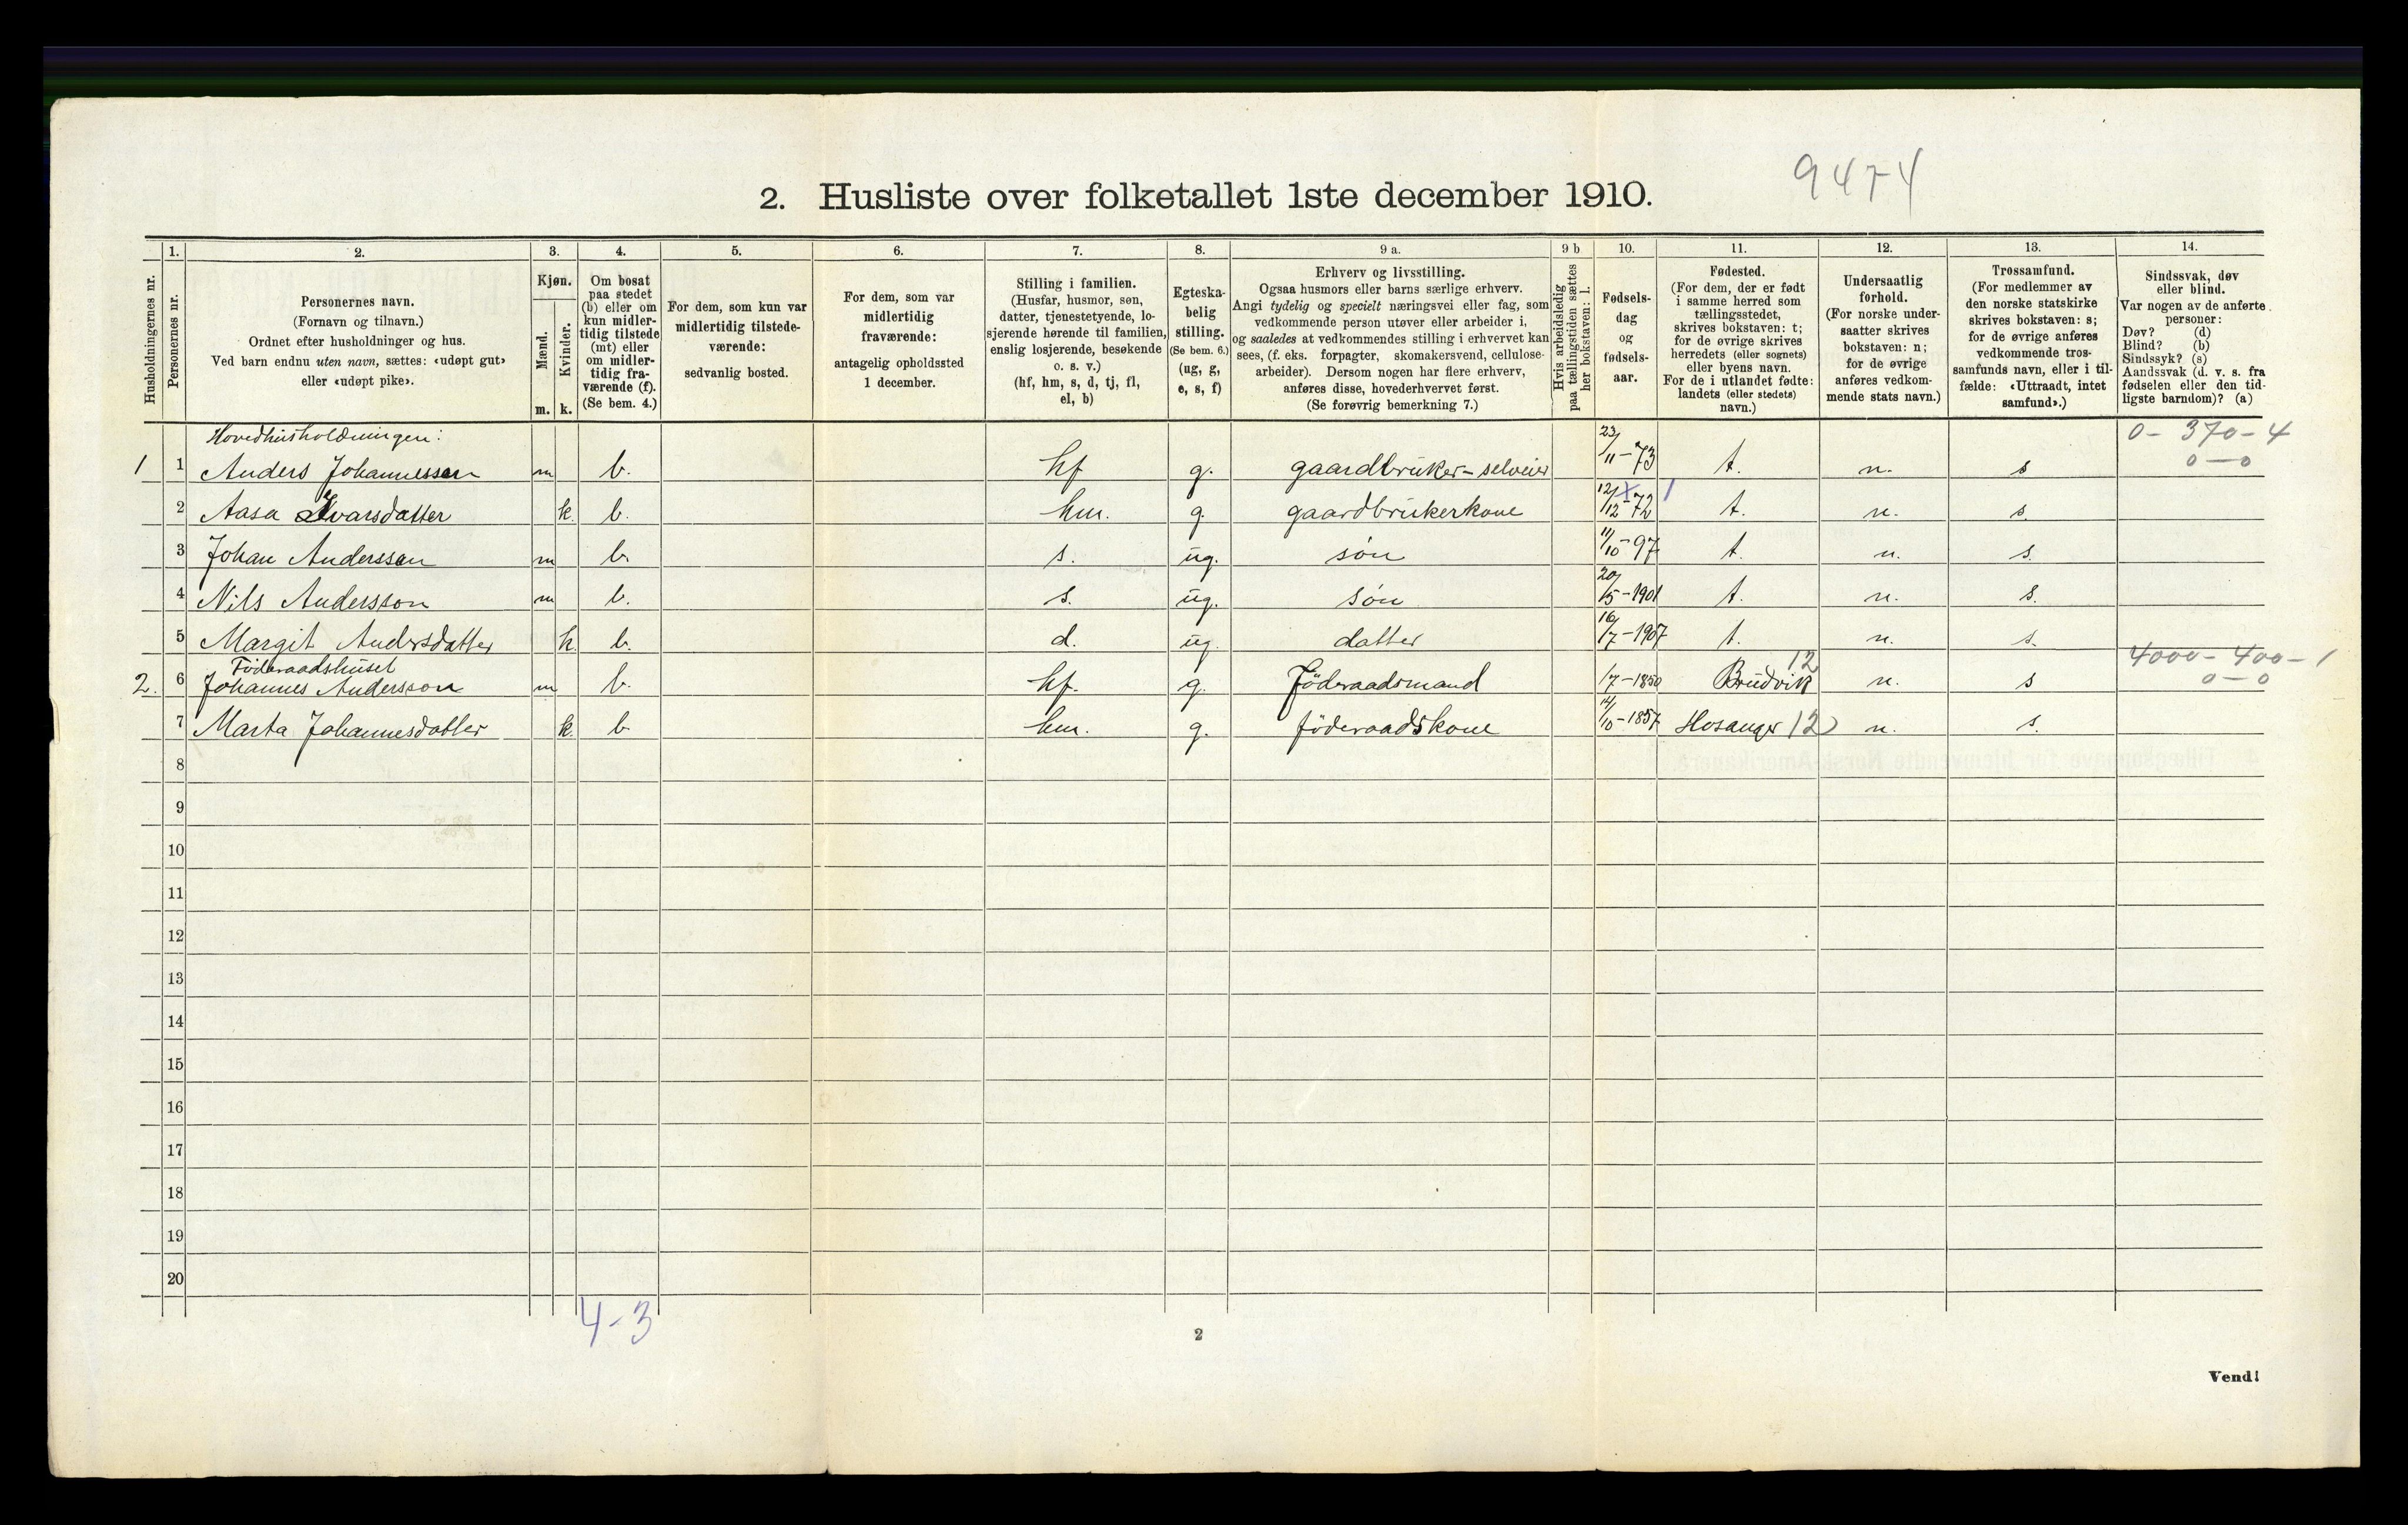 9474
2. Husliste over folketallet 1ste december 1910.
Husholdningernes nr.
1. Personernes nr.
2. Personernes navn.
(Fornavn og tilnavn.)
Ordnet efter husholdninger og hus.
Ved barn endnu uten navn, sættes: «udøpt gut»
eller «udøpt pike».
3. Kjøn.
Mænd. m.
Kvinder. k.
4. Om bosat
paa stedet
(b) eller om
kun midler-
tidig tilstede
(mt) eller
om midler-
tidig fra-
værende (f).
(Se bem. 4.)
5. For dem, som kun var
midlertidig tilstede-
værende:
sedvanlig bosted.
6. For dem, som var
midlertidig
fraværende:
antagelig opholdssted
1 december.
7. Stilling i familien.
(Husfar, husmor, søn,
datter, tjenestetyende, lo-
sjerende hørende til familien,
enslig losjerende, besøkende
o. s. v.)
(hf, hm, s, d, tj, fl,
el, b)
8. Egteska-
belig
stilling.
(Se bem. 6.)
(ug, g,
e, s, f)
9 a. Erhverv og livsstilling.
Ogsaa husmors eller barns særlige erhverv.
Angi tydelig og specielt næringsvei eller fag, som
vedkommende person utøver eller arbeider i,
og saaledes at vedkommendes stilling i erhvervet kan
sees, (f. eks. forpagter, skomakersvend, cellulose-
arbeider). Dersom nogen har flere erhverv,
anføres disse, hovederhvervet først.
(Se forøvrig bemerkning 7.)
9 b Hvis arbeidsledig
paa tællingstiden sættes
her bokstaven: l.
10. Fødsels-
dag
og
fødsels-
aar.
11. Fødested.
(For dem, der er født
i samme herred som
tællingsstedet,
skrives bokstaven: t;
for de øvrige skrives
herredets (eller sognets)
eller byens navn.
For de i utlandet fødte:
landets (eller stedets)
navn.)
12. Undersaatlig
forhold.
(For norske under-
saatter skrives
bokstaven: n;
for de øvrige
anføres vedkom-
mende stats navn.)
13. Trossamfund.
(For medlemmer av
den norske statskirke
skrives bokstaven: s;
for de øvrige anføres
vedkommende tros-
samfunds navn, eller i til-
fælde: «Uttraadt, intet
samfund».)
14. Sindssvak, døv
eller blind.
Var nogen av de anførte
personer:
Døv? (d)
Blind? (b)
Sindssyk? (s)
Aandssvak (d. v. s. fra
fødselen eller den tid-
ligste barndom)? (a)
Hovedhusholdningen: 0 - 370 - 4
1 1 Anders Johannessen m b. hf g. gaardbruker - selveier 23/11 - 73 t. n. s 0 - 0
2 Aasa Ivarsdatter k. b. hm. g. gaardbrukerkone 12/12 - 72 t. n. s.
3 Johan Anderssen m b. s. ug. søn 11/10 - 97 t. n. s.
4 Nils Andersson m b. s. ug. søn 20/5 - 1901 t. n. s.
5 Margit Andersdatter k. b. d. ug. datter 16/7 - 1907 t. n. s.
Föderaadshuset 12 4000 - 400 - 1
2. 6 Johannes Andersson m b. hf. g. Föderaadsmand 1/7 - 1850 Brudvik n. s 0 - 0
7 Marta Johannesdatter k. b. hm. g. föderaadskone 14/10 - 1857 Hosanger 12 n. s.
8
9
10
11
12
13
14
15
16
17
18
19
20
4 - 3
2
Vend!